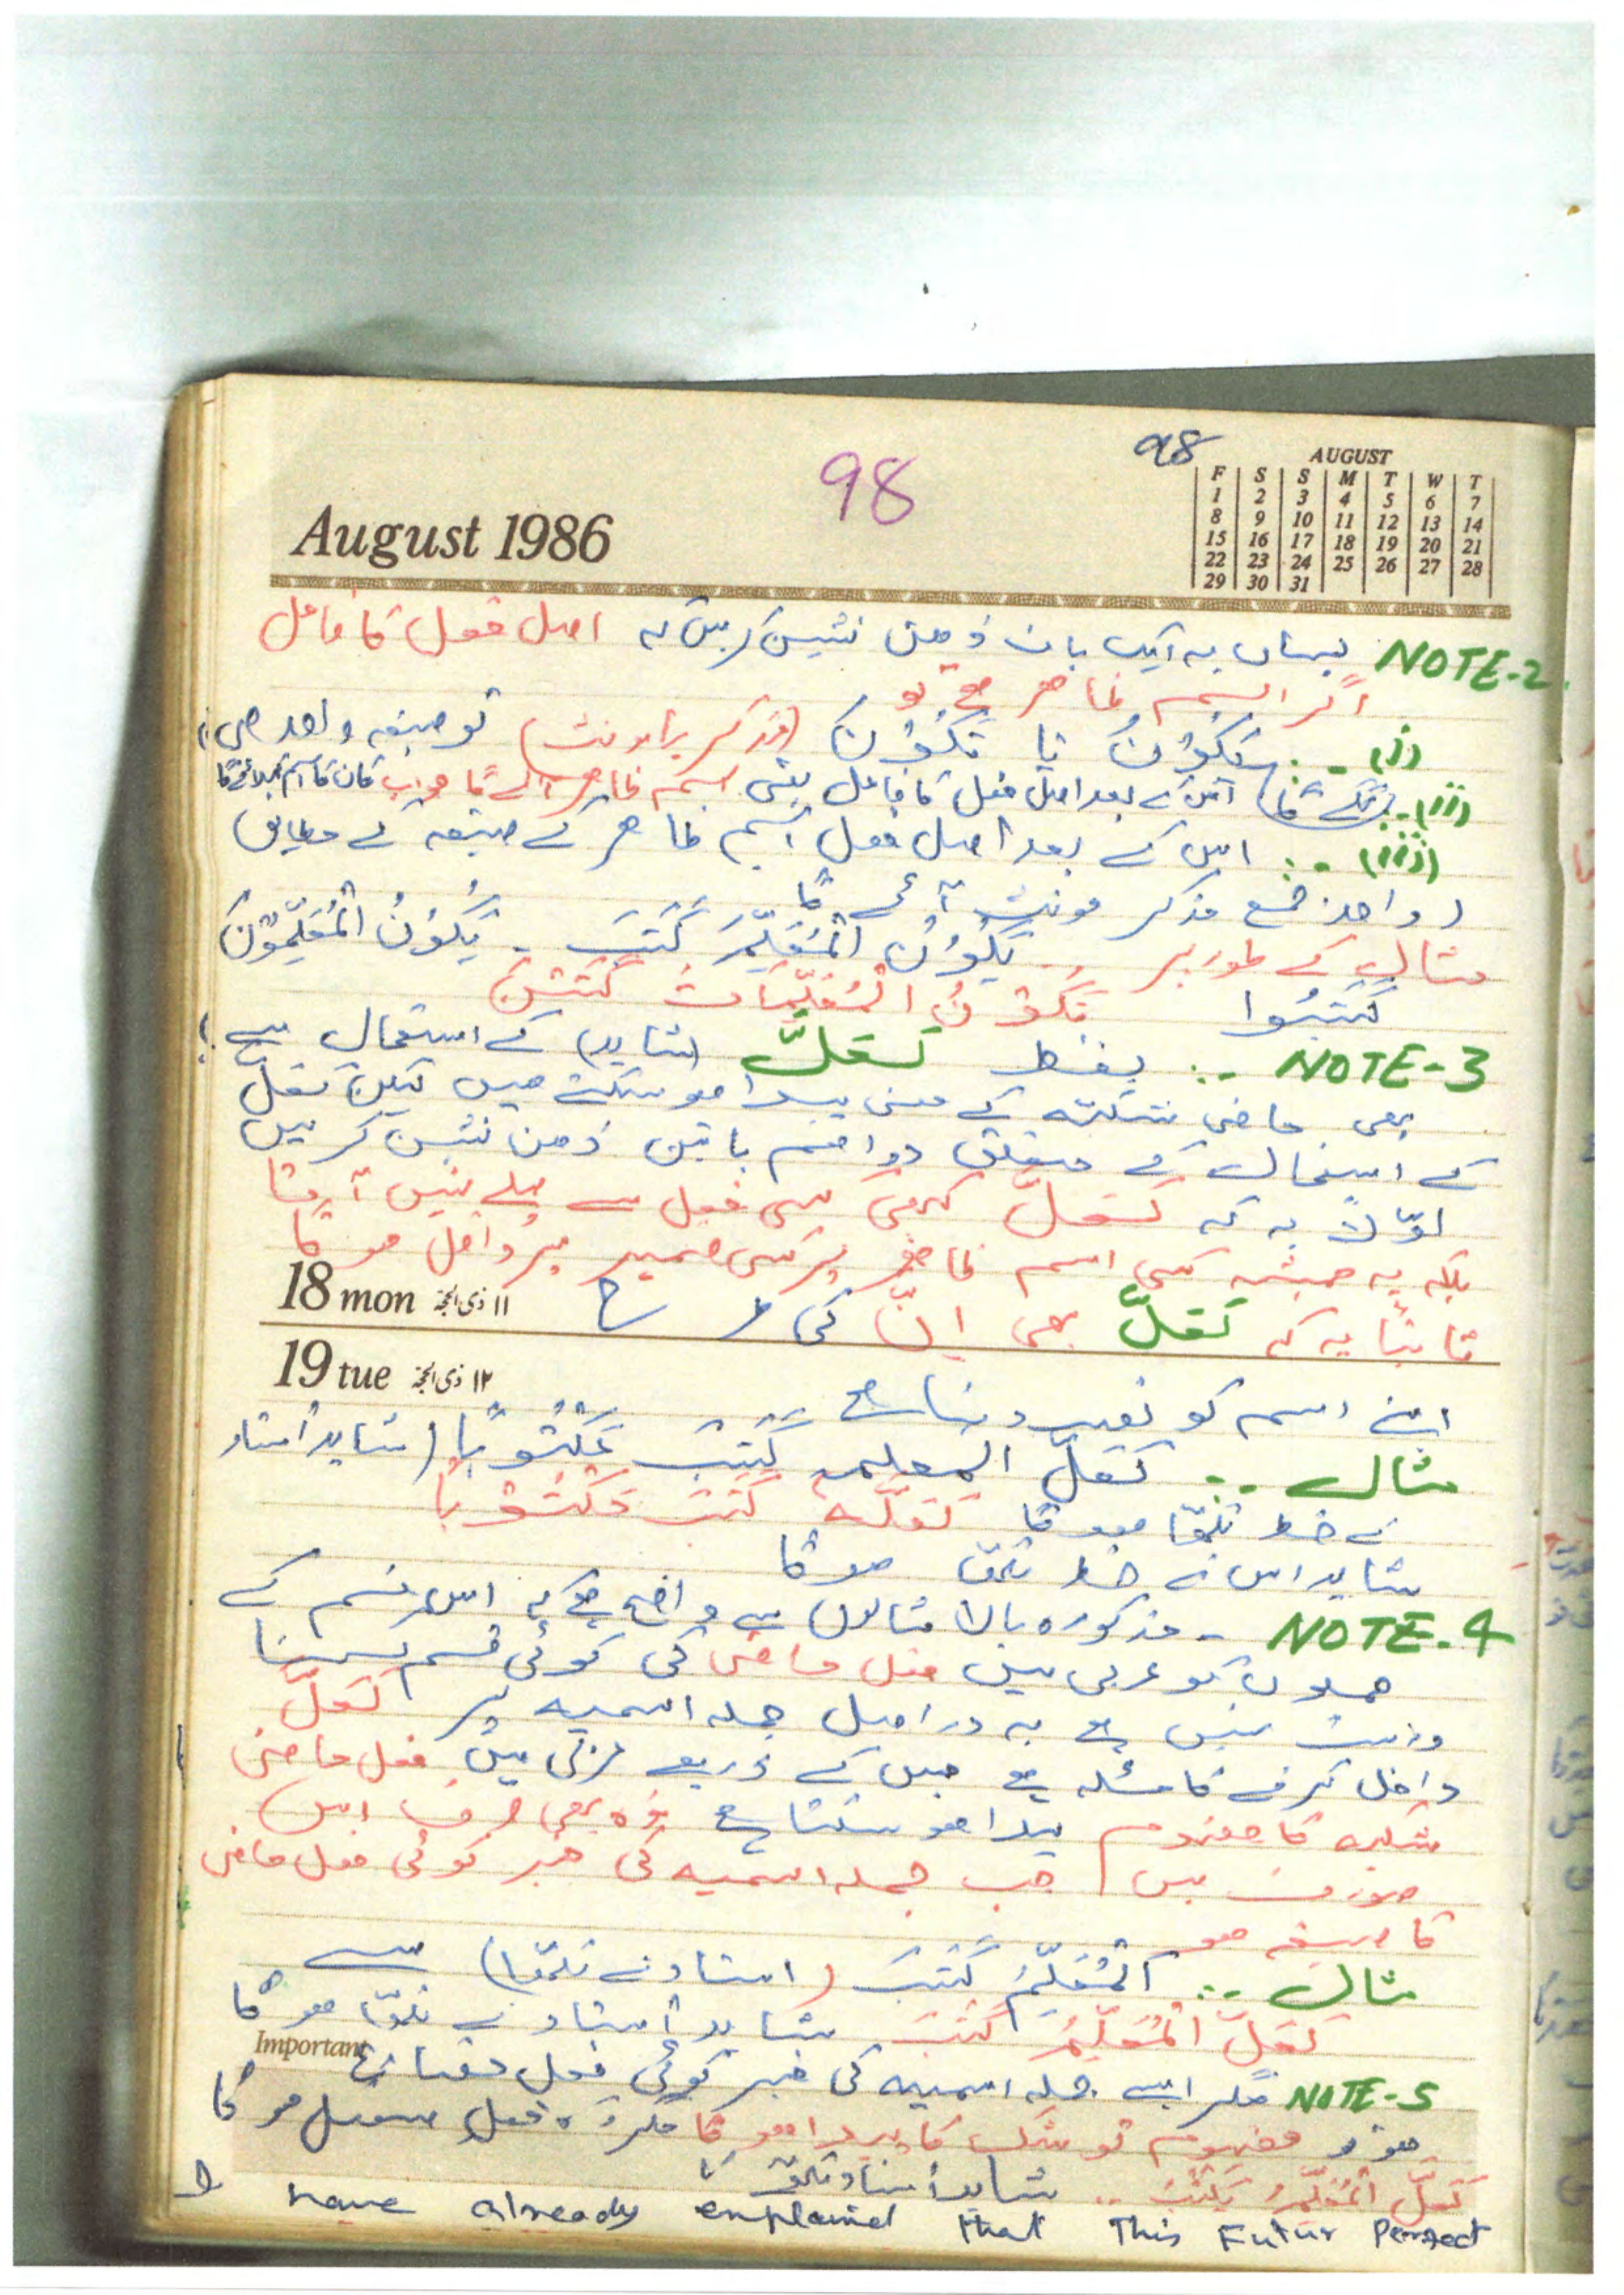 98
98
August 1986
AUGUST
F S S M T W T
1 2 3 4 5 6 7
8 9 10 11 12 13 14
15 16 17 18 19 20 21
22 23 24 25 26 27 28
29 30 31
NOTE-2 یہاں یہ ایک بات ذہن نشین کر لیں کہ اصل فعل کا فاعل
اگر اسم ظاہر ہے تو
(i) یَکُوْنُ یا تَکُوْنُ (مذکر یا مونث) تو صیغہ واحد ہی
(ii) اس کے بعد اصل فعل کا فاعل یعنی اسم ظاہر آئے گا جو اب کان کا اسم کہلائے گا
(iii) اس کے بعد اصل فعل اسم ظاہر کے صیغہ کے مطابق
واحد جمع مذکر مونث آئے گا
مثال کے طور پر یَکُوْنُ الْمُعَلِّمُ کَتَبَ - یَکُوْنُ الْمُعَلِّمُوْنَ
کَتَبُوا تَکُوْنُ الْمُعَلِّمَاتُ کَتَبْنَ
NOTE-3 لفظ لَعَلَّ (شاید) کے استعمال سے
بھی ماضی شکیہ کے معنی پیدا ہو سکتے ہیں لیکن لعلّ
کے استعمال کے متعلق دو اہم باتیں ذہن نشین کر لیں
اوّلاً یہ کہ لَعَلَّ کبھی کسی فعل سے پہلے نہیں آتا
بلکہ یہ ہمیشہ کسی اسم ظاہر یا کسی ضمیر پر داخل ہو گا
18 mon ۱۱ ذی الحجۃ
ثانیاً یہ کہ لَعَلَّ بھی اِنَّ کی طرح
19 tue ۱۲ ذی الحجۃ
اپنے اسم کو نصب دیتا ہے
مثال لَعَلَّ المعلمَ کَتَبَ مَکْتُوْبًا (شاید استاد
نے خط لکھا ہو گا لَعَلَّهٗ کَتَبَ مَکْتُوْبًا
شاید اس نے خط لکھا ہو گا
NOTE-4 - مذکورہ بالا مثالوں سے واضح ہے کہ اس قسم کے
جملوں کو عربی میں فعل ماضی کی کوئی قسم سمجھنا
درست نہیں ہے یہ دراصل جملہ اسمیہ پر لَعَلَّ
داخل کرنے کا مسئلہ ہے جس کے ذریعے میں فعل ماضی
شکیہ کا مفہوم پیدا ہو سکتا ہے وہ بھی صرف اس
صورت میں جب جملہ اسمیہ کی خبر کوئی فعل ماضی
کا صیغہ ہو
مثال اَلْمُعَلِّمُ کَتَبَ (استاد نے لکھا) سے
لَعَلَّ الْمُعَلِّمَ کَتَبَ شاید استاد نے لکھا ہو گا
Important
NOTE-5 مگر ایسے جملہ اسمیہ کی خبر کوئی فعل مضارع
ہو تو مفہوم تو شک کا پیدا ہو گا مگر وہ فعل مستقبل ہو گا
لَعَلَّ الْمُعَلِّمَ یَکْتُبُ شاید استاد لکھے گا
I have already explained that This Futur Perfect